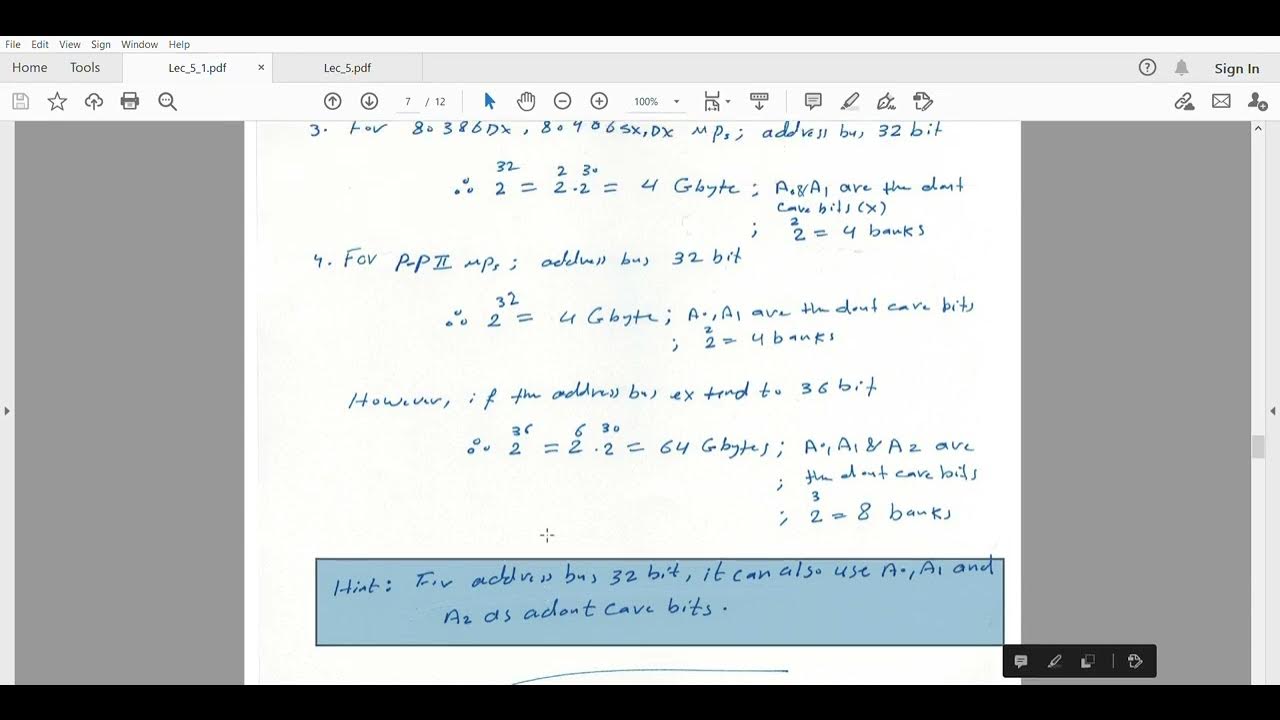 File Edit View Sign Window Help
Home Tools Lec_5_1.pdf × Lec_5.pdf ? Sign In
7 / 12 100%
3. For 80386DX, 80486SX,DX μps; address bus 32 bit
∴ 2^32 = 2^2 . 2^30 = 4 Gbyte ; A0&A1 are the dont
care bits (x)
; 2^2 = 4 banks
4. For P-PII μps; address bus 32 bit
∴ 2^32 = 4 Gbyte; A0, A1 are the dont care bits
; 2^2 = 4 banks
However, if the address bus extend to 36 bit
∴ 2^36 = 2^6 . 2^30 = 64 Gbytes; A0, A1 & A2 are
; the dont care bits
; 2^3 = 8 banks
Hint: For address bus 32 bit, it can also use A0, A1 and
A2 as a dont care bits.